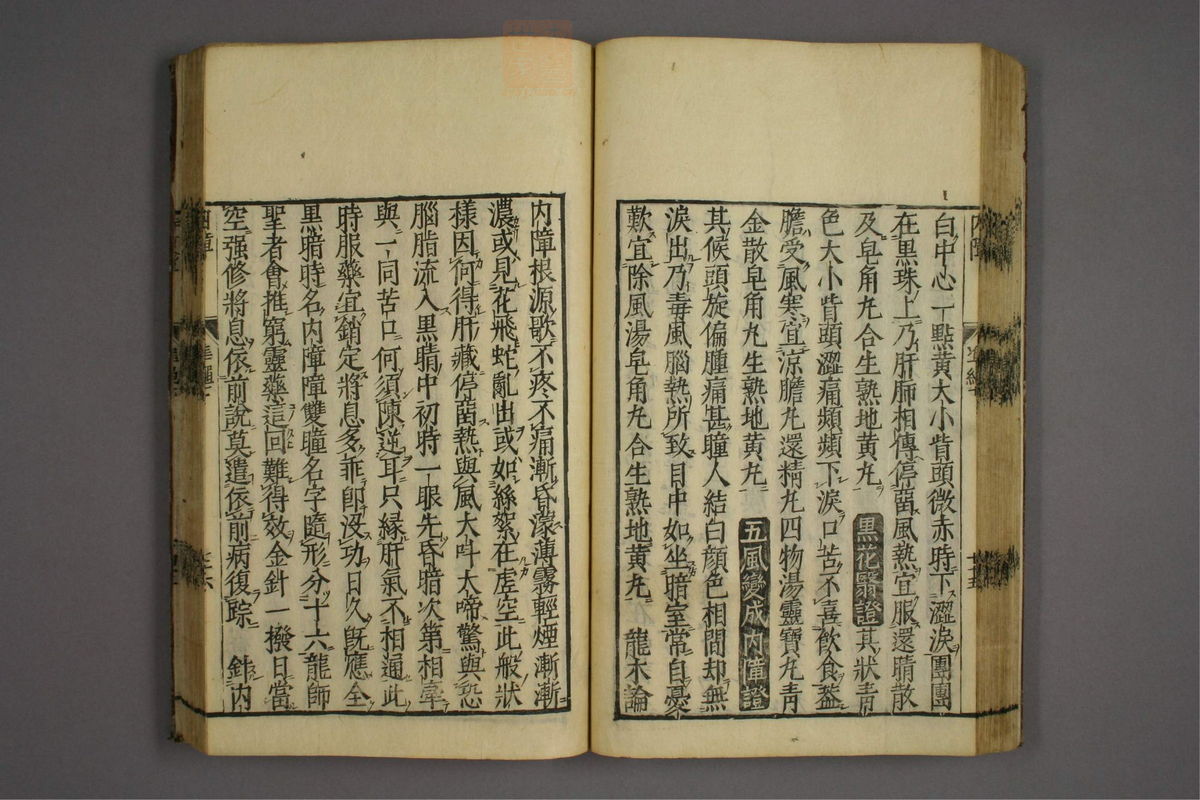 白中心一點黃大小眥頭微赤時下澀淚團團
在黑珠上乃肝肺相傳停留風熱宜服還睛散
及皂角丸合生熟地黃丸　黑花翳證其狀青
色大小眥頭澀痛頻頻下淚口苦不喜飲食蓋
膽受風寒宜涼膽丸還精丸四物湯靈寶丸青
金散皂角丸生熟地黃丸　五風變成內障證
其候頭旋偏腫痛甚瞳人結白顏色相間却無
淚出乃毒風腦熱所致目中如坐暗室常自憂
歎宜除風湯皂角丸合生熟地黃丸　龍木論
內障根源歌不疼不痛漸昏濛薄霧輕煙漸漸
濃或見花飛蛇亂出或如絲絮在虛空此般狀
樣因何得肝藏停留熱與風大叫大啼驚與恐
腦脂流入黑睛中初時一眼先昏暗次第相牽
與一同苦口何須陳逆耳只緣肝氣不相通此
時服藥宜銷定將息多乖即沒功日久既應全
黑暗時名內障障雙瞳名字隨形分十六龍師
聖者會推窮靈藥這回難得效金針一撥日當
空强修將息依前說莫遣依前病復踪　針內